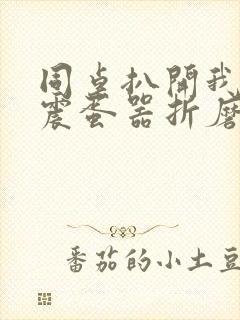 同桌扒開我
震蛋器折磨
番茄的小土豆